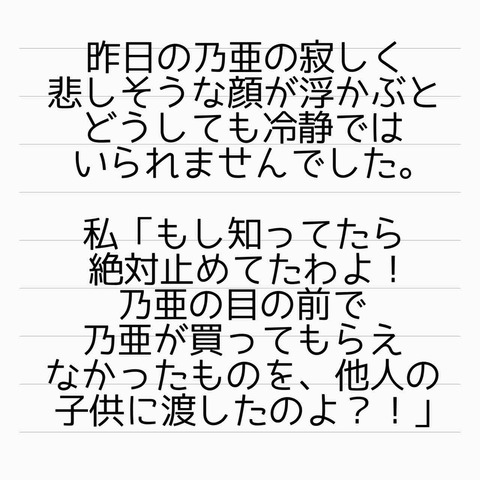 昨日の乃亜の寂しく
悲しそうな顔が浮かぶと
どうしても冷静では
いられませんでした。
私「もし知ってたら
絶対止めてたわよ！
乃亜の目の前で
乃亜が買ってもらえ
なかったものを、他人の
子供に渡したのよ？！」